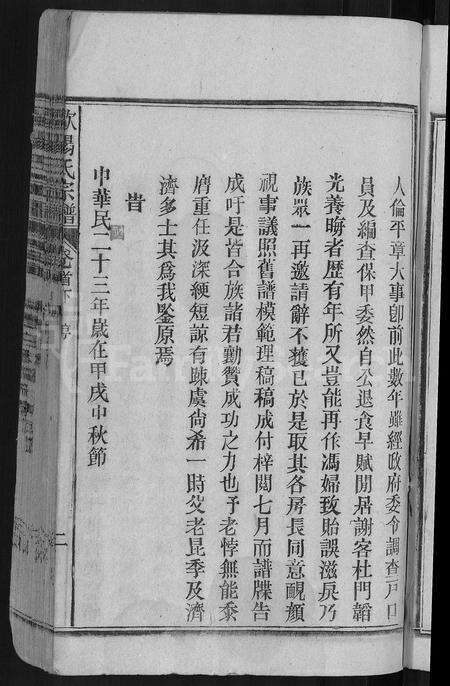 人倫平章大事卽前此數年雖經政府委令調查戸口
員及編查保甲委然自公退食早賦閒居謝客杜門韜
光養晦者歷有年所又豈能再作馮婦致貽誤滋戾乃
族眾一再邀請辭不獲已於是取其各房長同意靦顏
視事議照舊譜模範理稿稿成付梓閱七月而譜牒告
成吁是皆合族諸君勷贊成功之力也予老悖無能忝
膺重任汲深綆短諒有疎虞尙希一時父老昆季及濟
濟多士其爲我鍳原焉
旹
中華民二十三年歲在甲戌中秋節
歐陽氏宗譜 卷首下 二